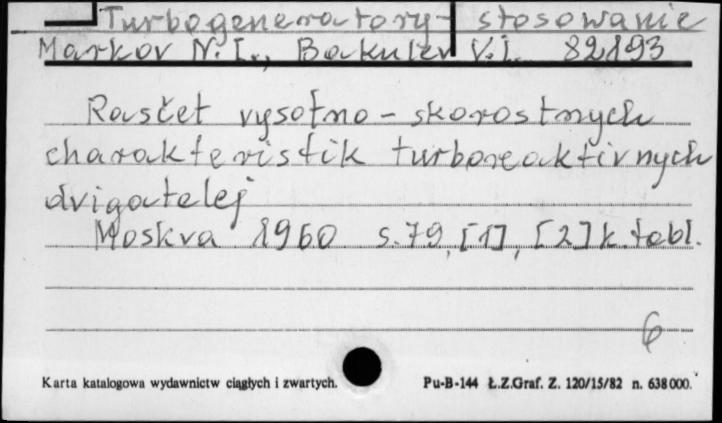 Turbogeneratory - stosowanie
Markov N.I., Bakulev V.I. 82193
Rasčet vysotno - skorostnych
charakteristik turboreaktivnych
dvigatelej
Moskva 1960 s. 79, [1], [2] k. tabl.
6
Karta katalogowa wydawnictw ciągłych i zwartych. Pu-B-144 Ł.Z.Graf. Z. 120/15/82 n. 638000.